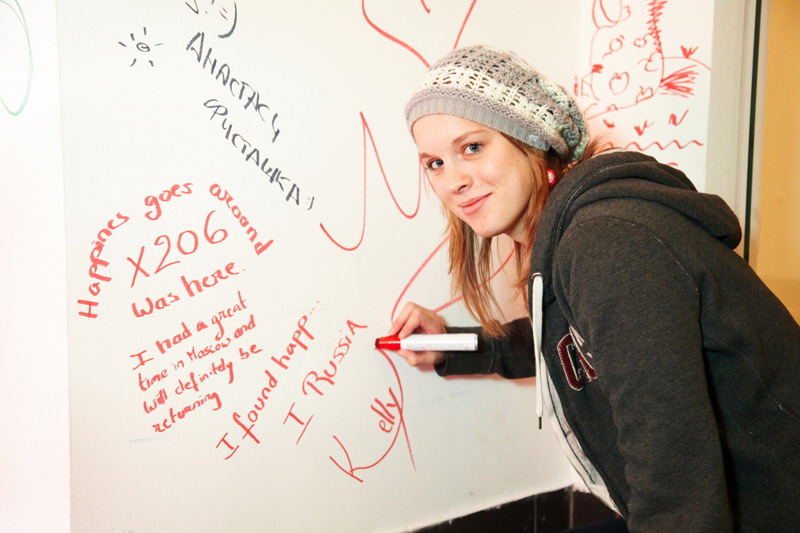 АНАСТАСИ
ФИСТАШКА)
Happines goes around
X206
Was here.
I had a great
time in Moscow and
will definitely be
returning
I found happ...
I Russia
Kelly